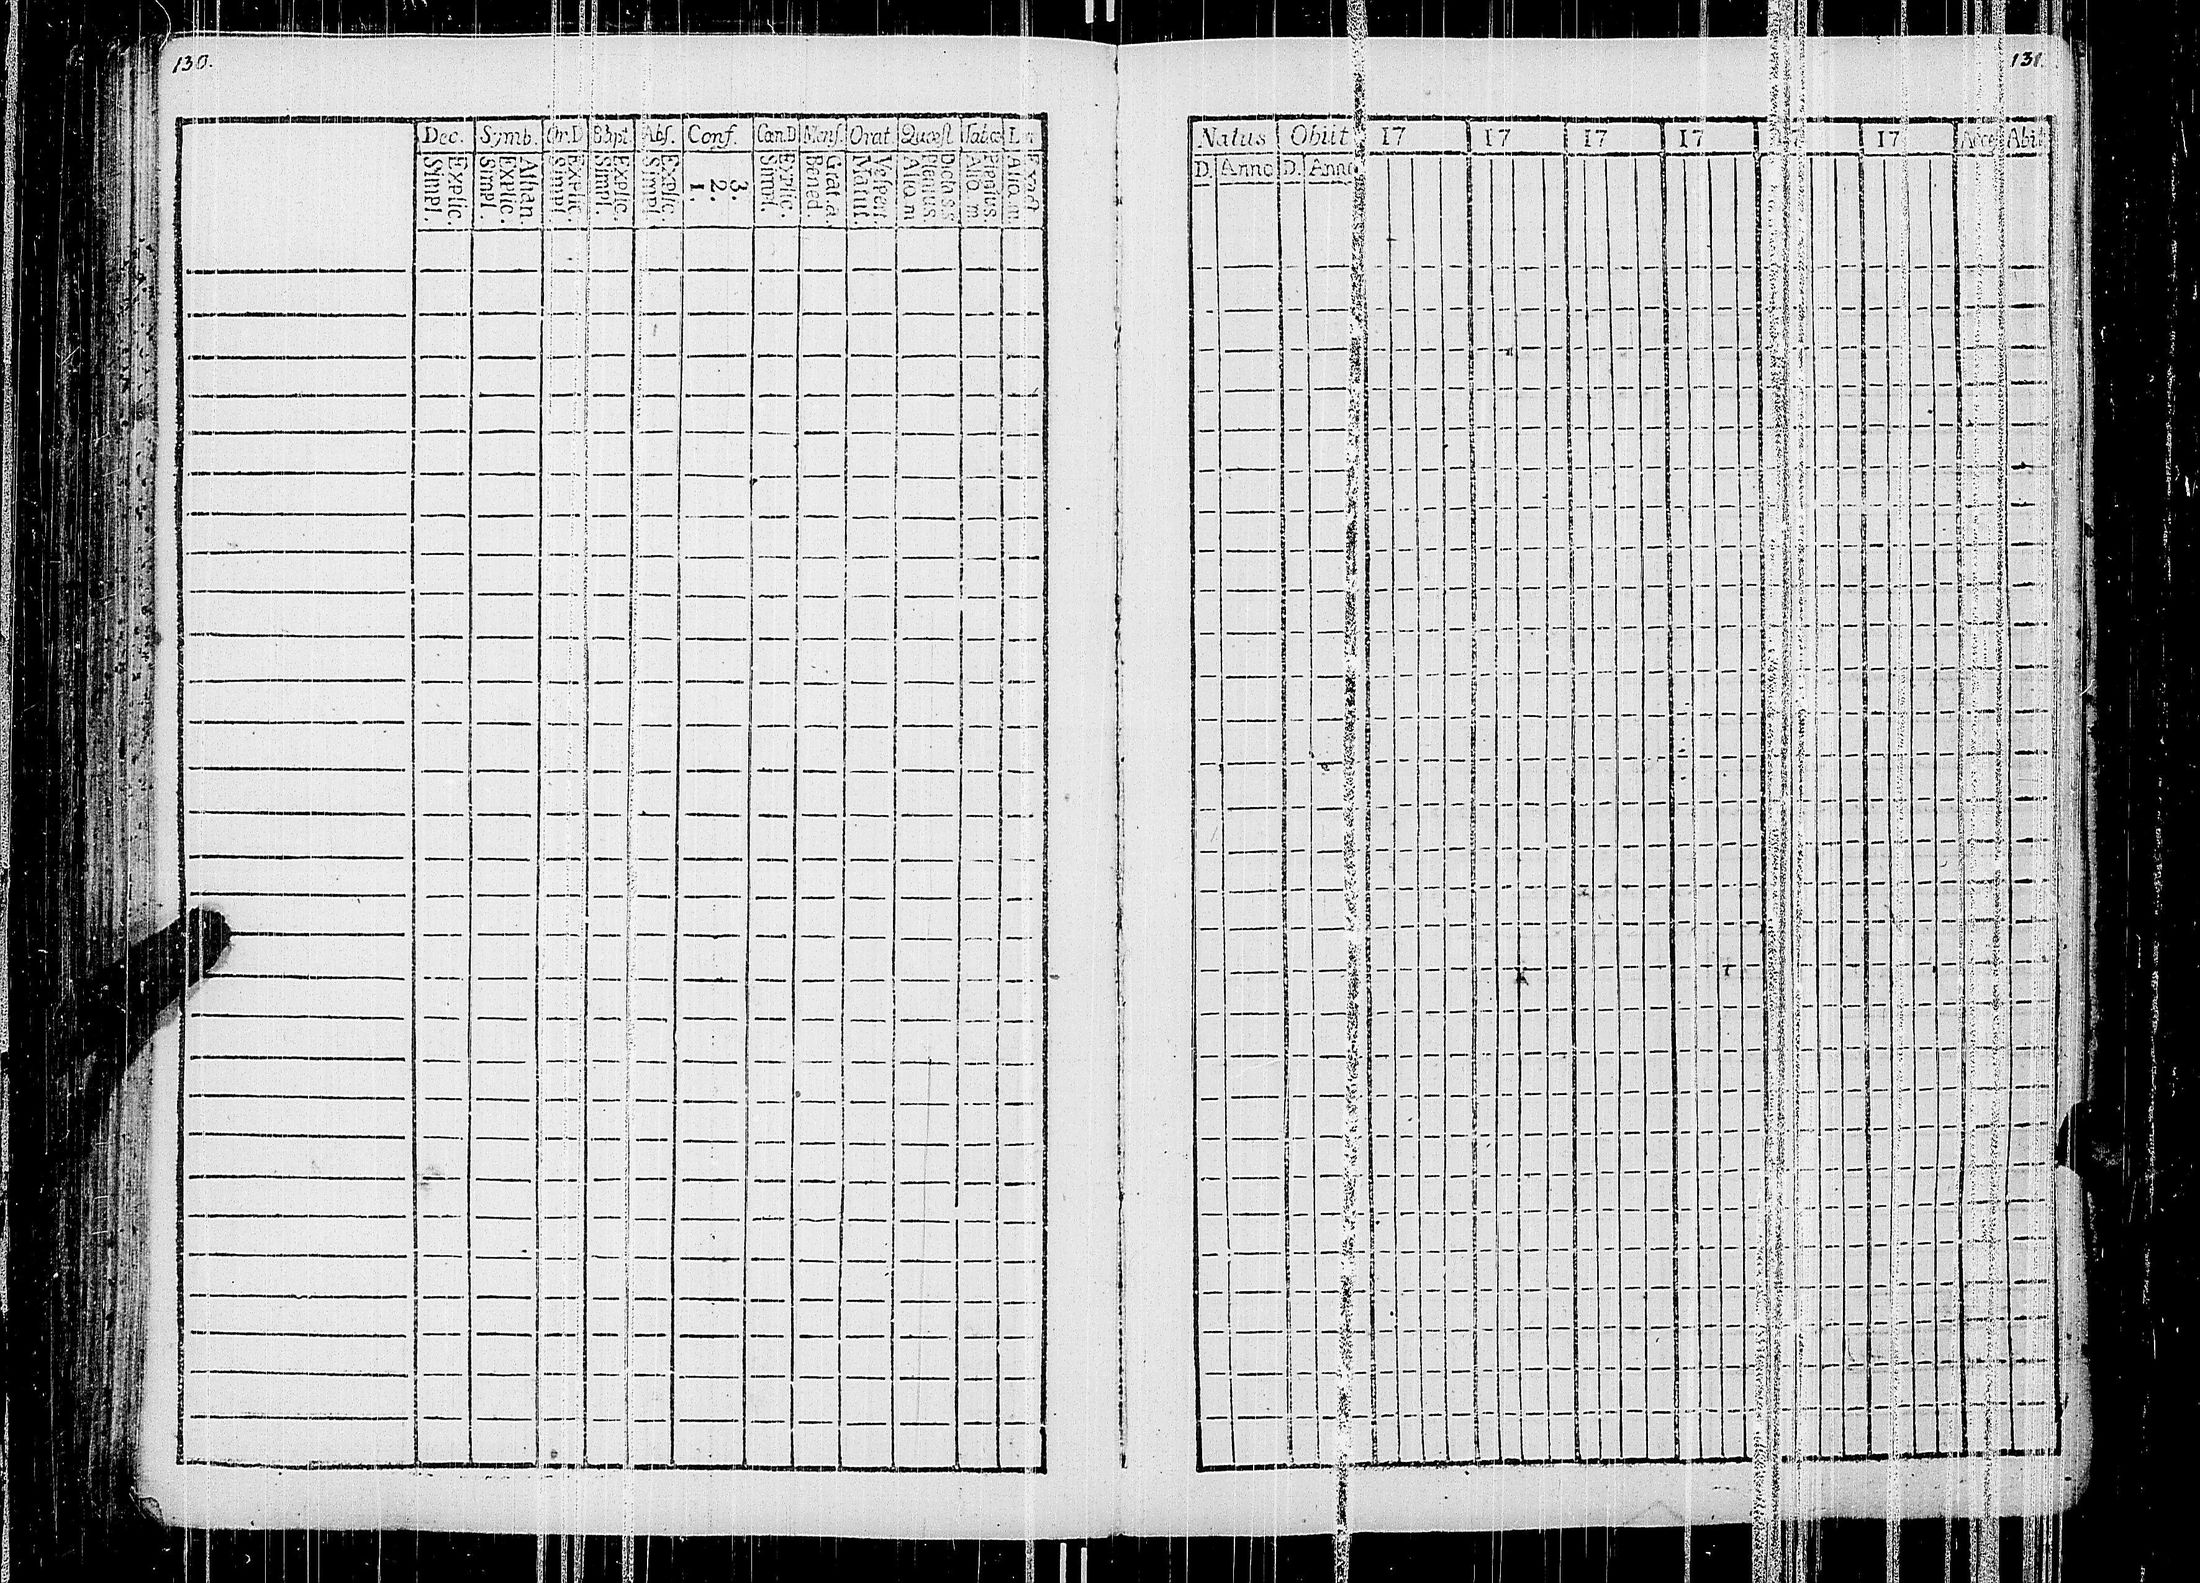 130.
Dec. Symb. Or.D Bapt. Abs. Conf. Cœn.D Mens. Orat. Quæst Tabæ
Explic. Simpl.
Athan. Explic. Simpl.
Explic. Simpl
Explic. Simpl.
Explic. Simpl
3. 2. 1.
Explic. Simpl.
Grat.a. Bened.
Vesper. Matut.
Dictass Plenius Alio.m
Plenius. Alio.m
Alio.m.
131.
Natus Obiit 17 17 17 17 17 Acce Abit
D. Anno D. Anno